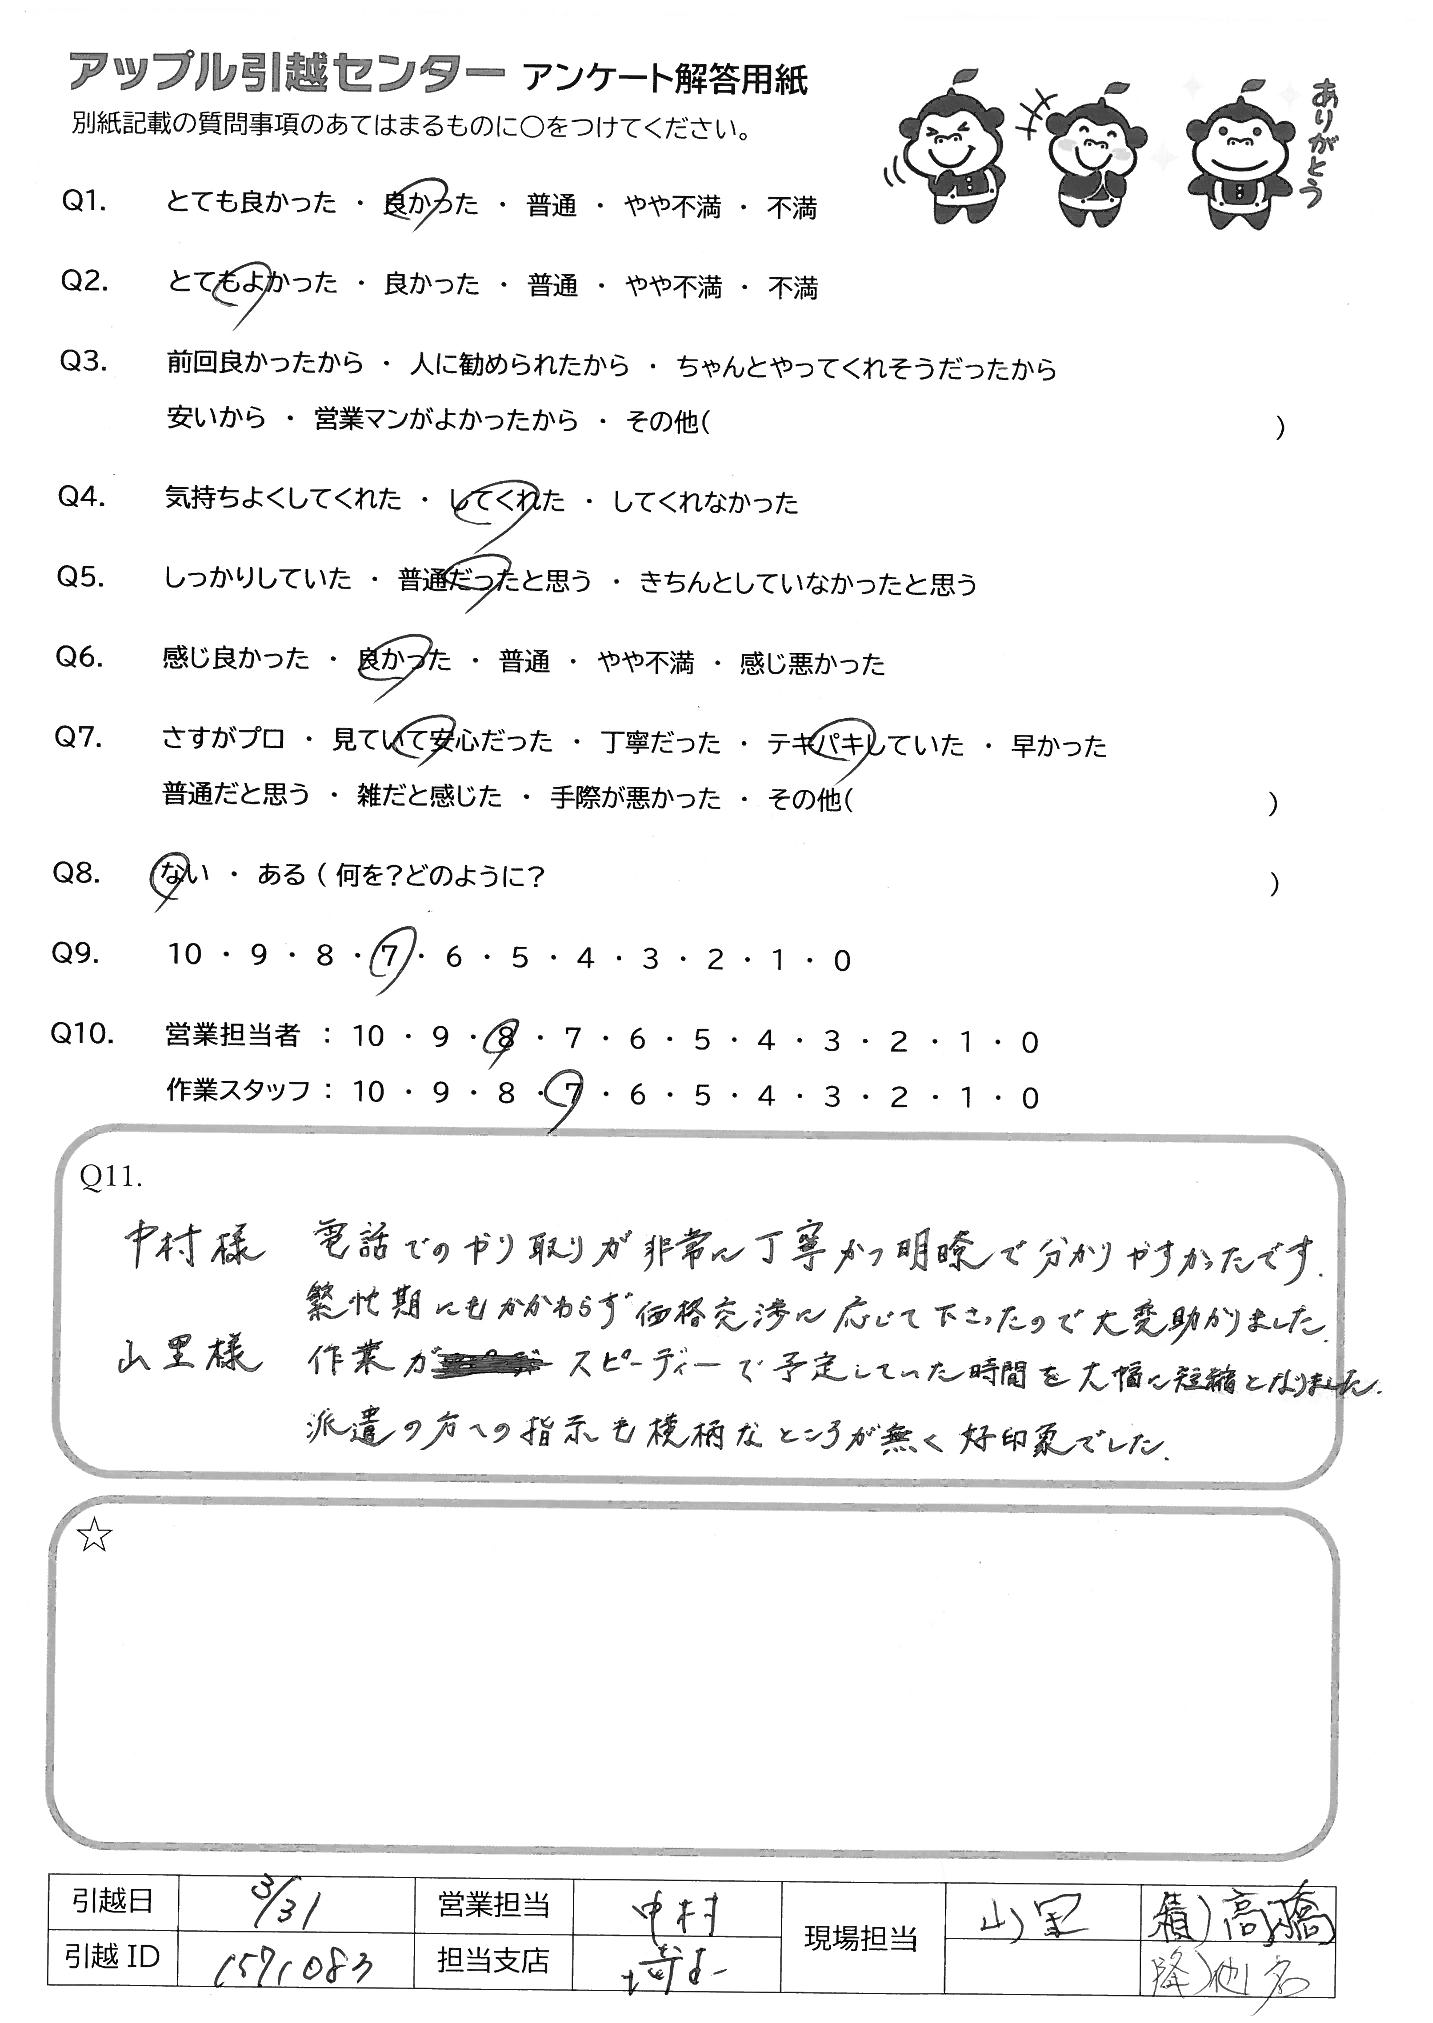 アップル引越センター アンケート解答用紙
別紙記載の質問事項のあてはまるものに〇をつけてください。
ありがとう
Q1. とても良かった ・ 良かった ・ 普通 ・ やや不満 ・ 不満
Q2. とてもよかった ・ 良かった ・ 普通 ・ やや不満 ・ 不満
Q3. 前回良かったから ・ 人に勧められたから ・ ちゃんとやってくれそうだったから
安いから ・ 営業マンがよかったから ・ その他( )
Q4. 気持ちよくしてくれた ・ してくれた ・ してくれなかった
Q5. しっかりしていた ・ 普通だったと思う ・ きちんとしていなかったと思う
Q6. 感じ良かった ・ 良かった ・ 普通 ・ やや不満 ・ 感じ悪かった
Q7. さすがプロ ・ 見ていて安心だった ・ 丁寧だった ・ テキパキしていた ・ 早かった
普通だと思う ・ 雑だと感じた ・ 手際が悪かった ・ その他( )
Q8. ない ・ ある ( 何を?どのように? )
Q9. 10 ・ 9 ・ 8 ・ 7 ・ 6 ・ 5 ・ 4 ・ 3 ・ 2 ・ 1 ・ 0
Q10. 営業担当者 : 10 ・ 9 ・ 8 ・ 7 ・ 6 ・ 5 ・ 4 ・ 3 ・ 2 ・ 1 ・ 0
作業スタッフ : 10 ・ 9 ・ 8 ・ 7 ・ 6 ・ 5 ・ 4 ・ 3 ・ 2 ・ 1 ・ 0
Q11.
中村様 電話でのやり取りが非常に丁寧かつ明瞭で分かりやすかったです.
繁忙期にもかかわらず価格交渉に応じて下さったので大変助かりました.
山里様 作業が スピーディーで予定していた時間を大幅に短縮となりました.
派遣の方への指示も横柄なところが無く好印象でした.
☆
引越日 3/31 営業担当 中村 現場担当 山里 積)高橋
引越 ID 1571083 担当支店 埼玉 降)他1名